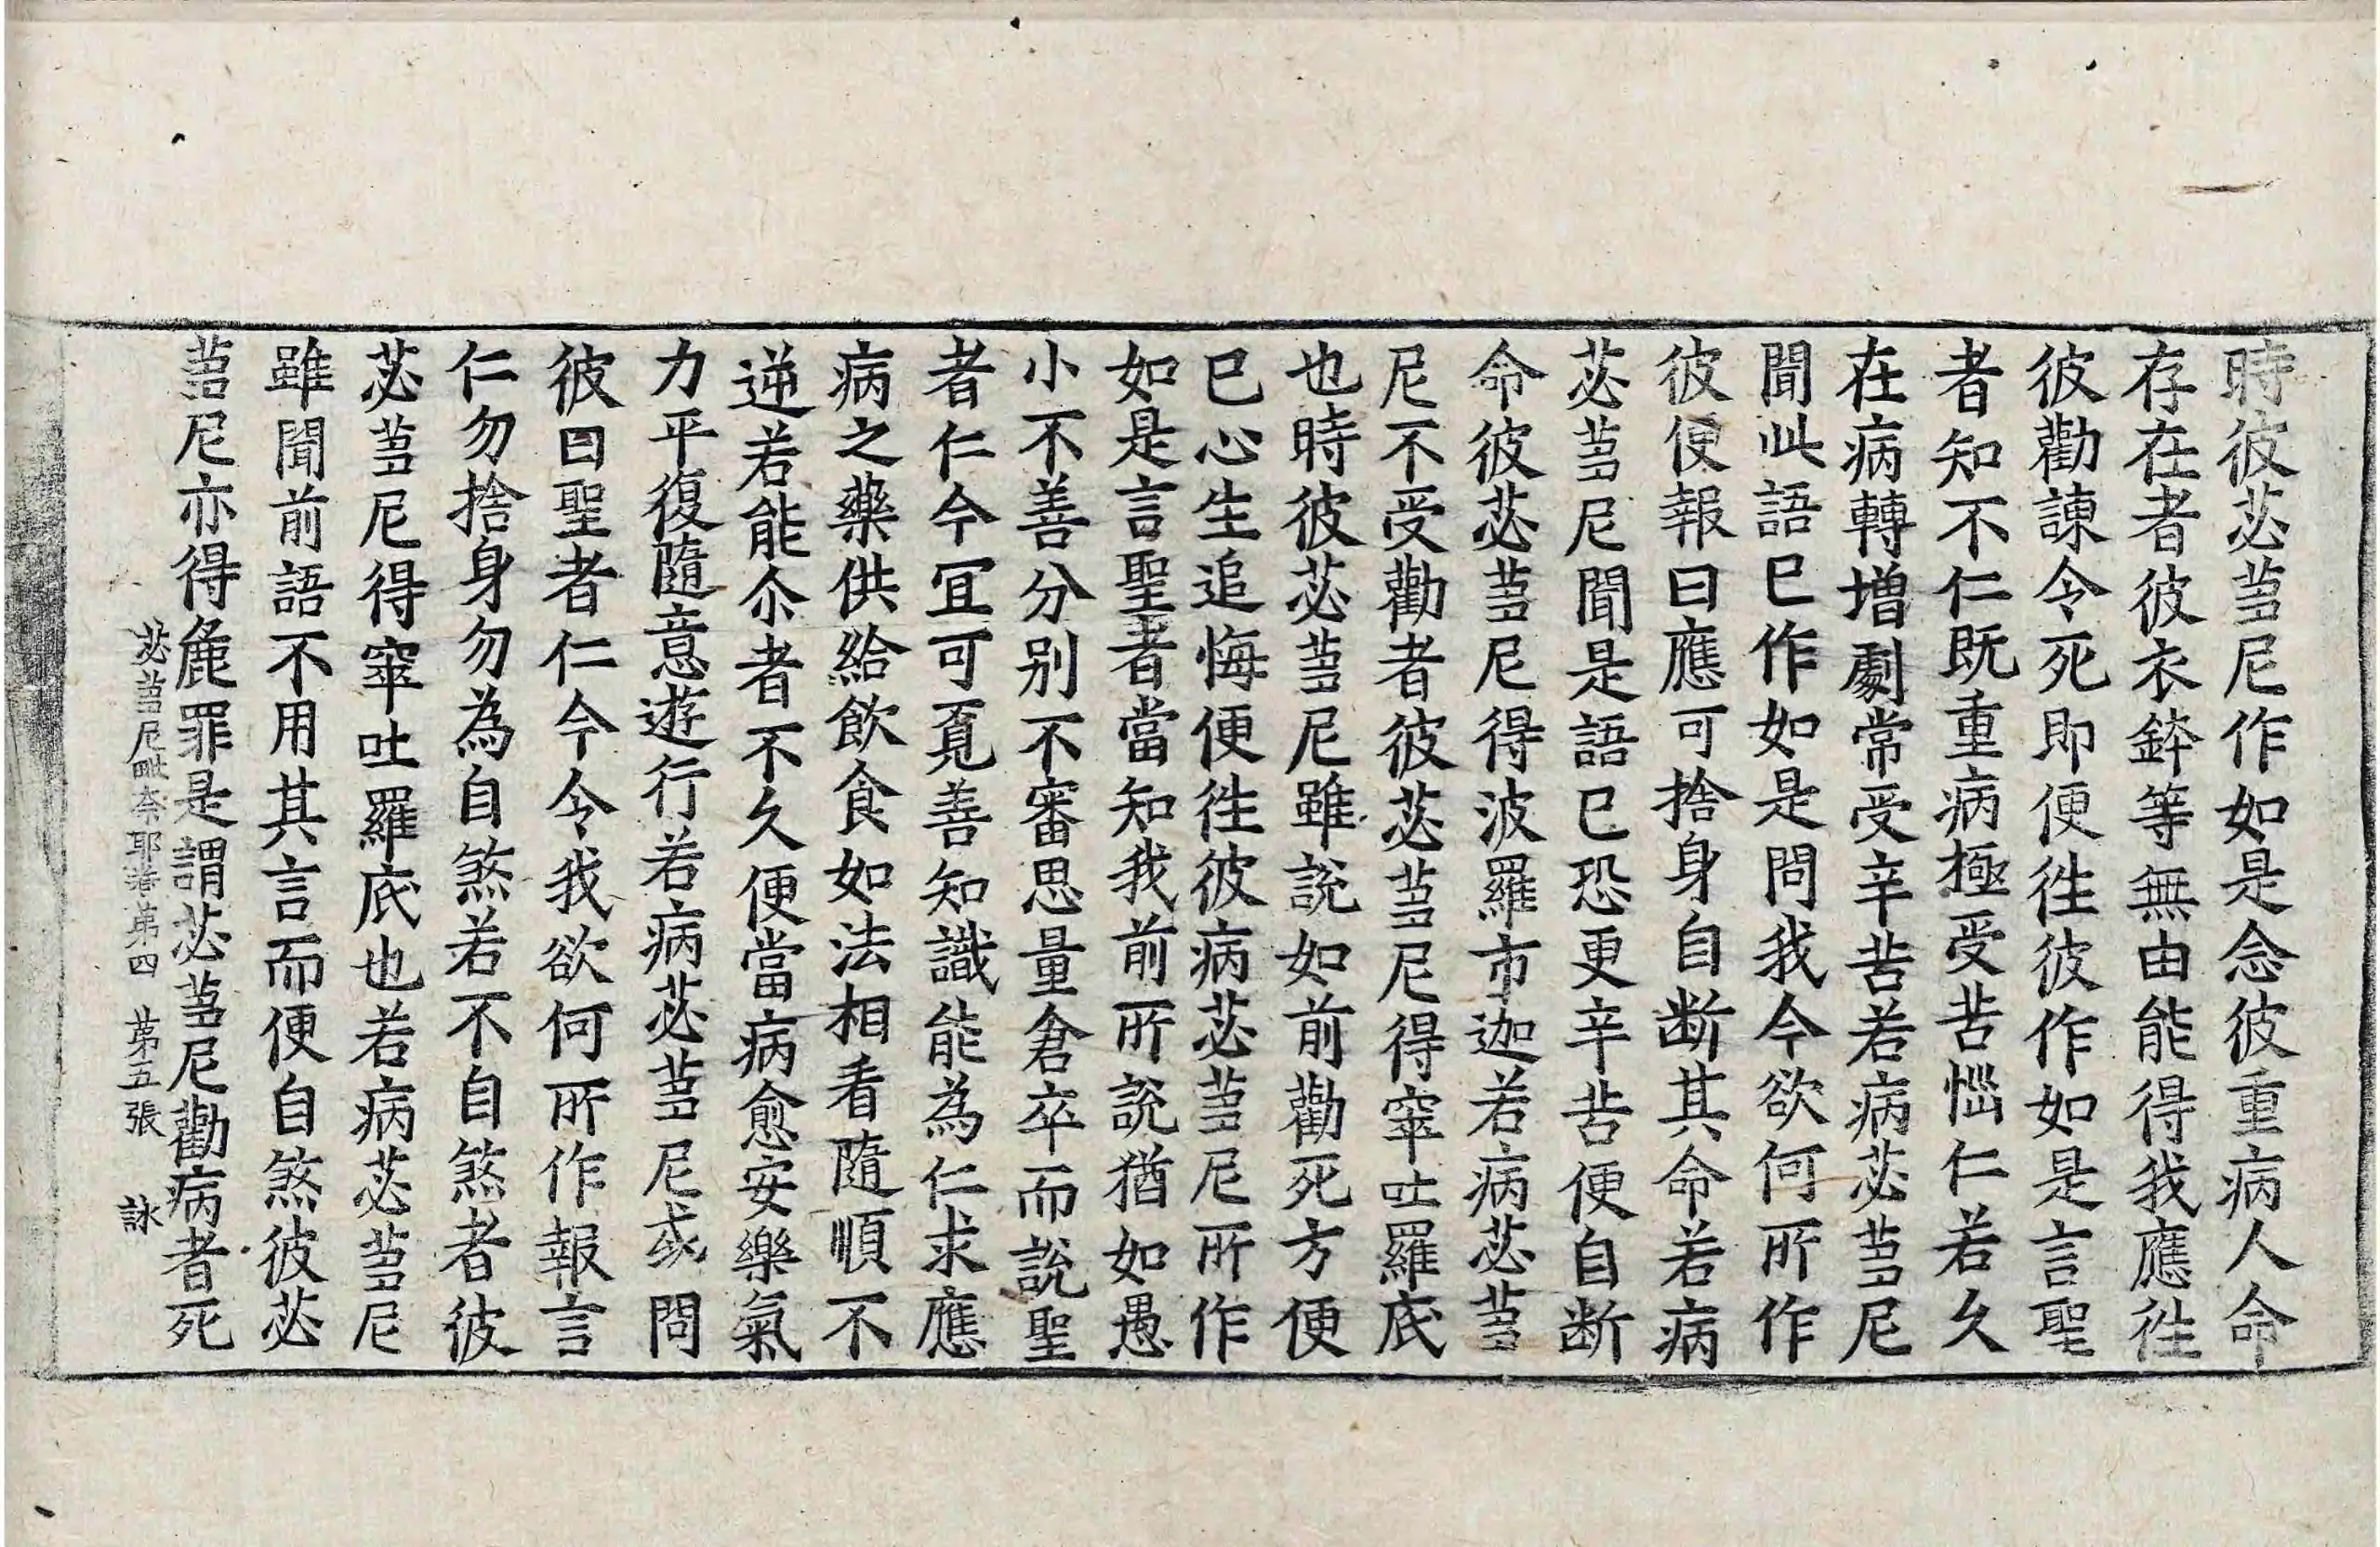 時彼苾蒭尼作如是念彼重病人命
存在者彼衣鉢等無由能得我應徃
彼勸諫令死即便徃彼作如是言聖
者知不仁既重病極受苦惱仁若久
在病轉增劇常受辛苦若病苾蒭尼
聞此語已作如是問我今欲何所作
彼便報曰應可捨身自断其命若病
苾蒭尼聞是語已恐更辛苦便自断
命彼苾蒭尼得波羅市迦若病苾蒭
尼不受勸者彼苾蒭尼得窣吐羅底
也時彼苾蒭尼雖說如前勸死方便
已心生追悔便徃彼病苾蒭尼所作
如是言聖者當知我前所說猶如愚
小不善分别不審思量倉卒而說聖
者仁今冝可覔善知識能為仁求應
病之藥供給飲食如法相看隨順不
逆若能尒者不久便當病愈安樂氣
力平復隨意遊行若病苾蒭尼或問
彼曰聖者仁今令我欲何所作報言
仁勿捨身勿為自煞若不自煞者彼
苾蒭尼得窣吐羅底也若病苾蒭尼
雖聞前語不用其言而便自煞彼苾
蒭尼亦得麁罪是謂苾蒭尼勸病者死
苾蒭尼毗奈耶卷第四 第五張 詠